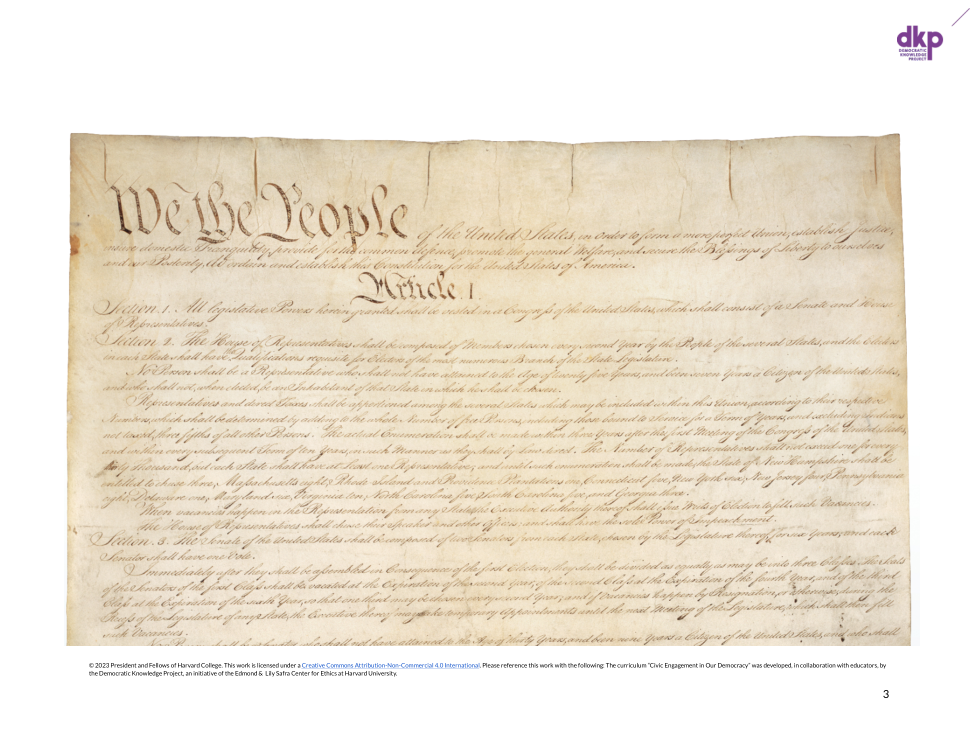 dkp
DEMOCRATIC
KNOWLEDGE
PROJECT
We the People of the United States, in Order to form a more perfect Union, establish Justice,
insure domestic Tranquility, provide for the common defence, promote the general Welfare, and secure the Blessings of Liberty to ourselves
and our Posterity, do ordain and establish this Constitution for the United States of America.
Article. I.
Section. 1. All legislative Powers herein granted shall be vested in a Congress of the United States, which shall consist of a Senate and House
of Representatives.
Section. 2. The House of Representatives shall be composed of Members chosen every second Year by the People of the several States, and the Electors
in each State shall have the Qualifications requisite for Electors of the most numerous Branch of the State Legislature.
No Person shall be a Representative who shall not have attained to the Age of twenty five Years, and been seven Years a Citizen of the United States,
and who shall not, when elected, be an Inhabitant of that State in which he shall be chosen.
Representatives and direct Taxes shall be apportioned among the several States which may be included within this Union, according to their respective
Numbers, which shall be determined by adding to the whole Number of free Persons, including those bound to Service for a Term of Years, and excluding Indians
not taxed, three fifths of all other Persons. The actual Enumeration shall be made within three Years after the first Meeting of the Congress of the United States,
and within every subsequent Term of ten Years, in such Manner as they shall by Law direct. The Number of Representatives shall not exceed one for every
thirty Thousand, but each State shall have at Least one Representative; and until such enumeration shall be made, the State of New Hampshire shall be
entitled to chuse three, Massachusetts eight, Rhode Island and Providence Plantations one, Connecticut five, New York six, New Jersey four, Pennsylvania
eight, Delaware one, Maryland six, Virginia ten, North Carolina five, South Carolina five, and Georgia three.
When vacancies happen in the Representation from any State, the Executive Authority thereof shall issue Writs of Election to fill such Vacancies.
The House of Representatives shall chuse their Speaker and other Officers; and shall have the sole Power of Impeachment.
Section. 3. The Senate of the United States shall be composed of two Senators from each State, chosen by the Legislature thereof, for six Years; and each
Senator shall have one Vote.
Immediately after they shall be assembled in Consequence of the first Election, they shall be divided as equally as may be into three Classes. The Seats
of the Senators of the first Class shall be vacated at the Expiration of the second Year, of the second Class at the Expiration of the fourth Year, and of the third
Class at the Expiration of the sixth Year, so that one third may be chosen every second Year; and if Vacancies happen by Resignation, or otherwise, during the
Recess of the Legislature of any State, the Executive thereof may make temporary Appointments until the next Meeting of the Legislature, which shall then fill
such Vacancies.
No Person shall be a Senator who shall not have attained to the Age of thirty Years, and been nine Years a Citizen of the United States, and who shall
© 2023 President and Fellows of Harvard College. This work is licensed under a Creative Commons Attribution-Non-Commercial 4.0 International. Please reference this work with the following: The curriculum "Civic Engagement in Our Democracy" was developed, in collaboration with educators, by
the Democratic Knowledge Project, an initiative of the Edmond & Lily Safra Center for Ethics at Harvard University.
3